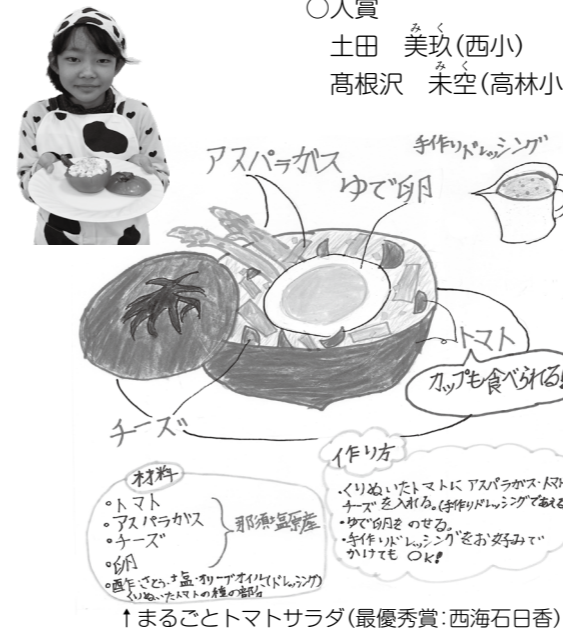 ○入賞
土田　美玖(西小)
みく
髙根沢　未空(高林小
みく
手作りドレッシング
アスパラガス
ゆで卵
トマト
カップも食べられる!
チーズ
材料
・トマト
・アスパラガス
・チーズ
・卵
那須塩原産
・酢・さとう・塩・オリーブオイル(ドレッシング)
くりぬいたトマトの種の部分
作り方
・くりぬいたトマトに アスパラガス・トマト
チーズを入れる。(手作りドレッシングであえる
・ゆで卵を のせる。
・手作りドレッシングをお好みで
かけても OK!
↑まるごとトマトサラダ(最優秀賞:西海石日香)